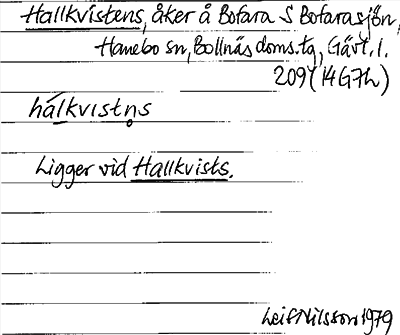 Hallkvistens, åker å Bofara S Bofarasjön,
Hanebo sn, Bollnäs doms.tg, Gävl. l.
209 (14G7h)
hálkvistn̥s
Ligger vid Hallkvists.
Leif Nilsson 1979